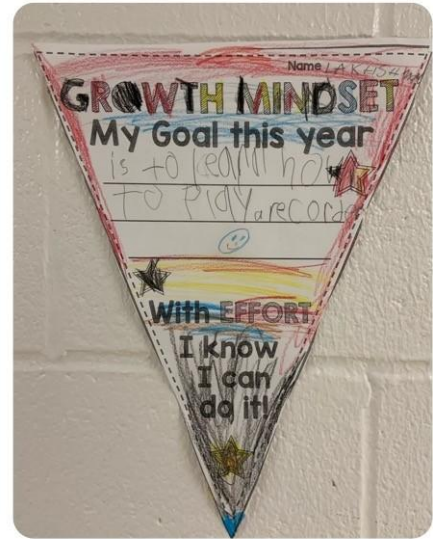 Name
GROWTH MINDSET
My Goal this year
is to learn how
to Play a record
With EFFORT
I know
I can
do it!